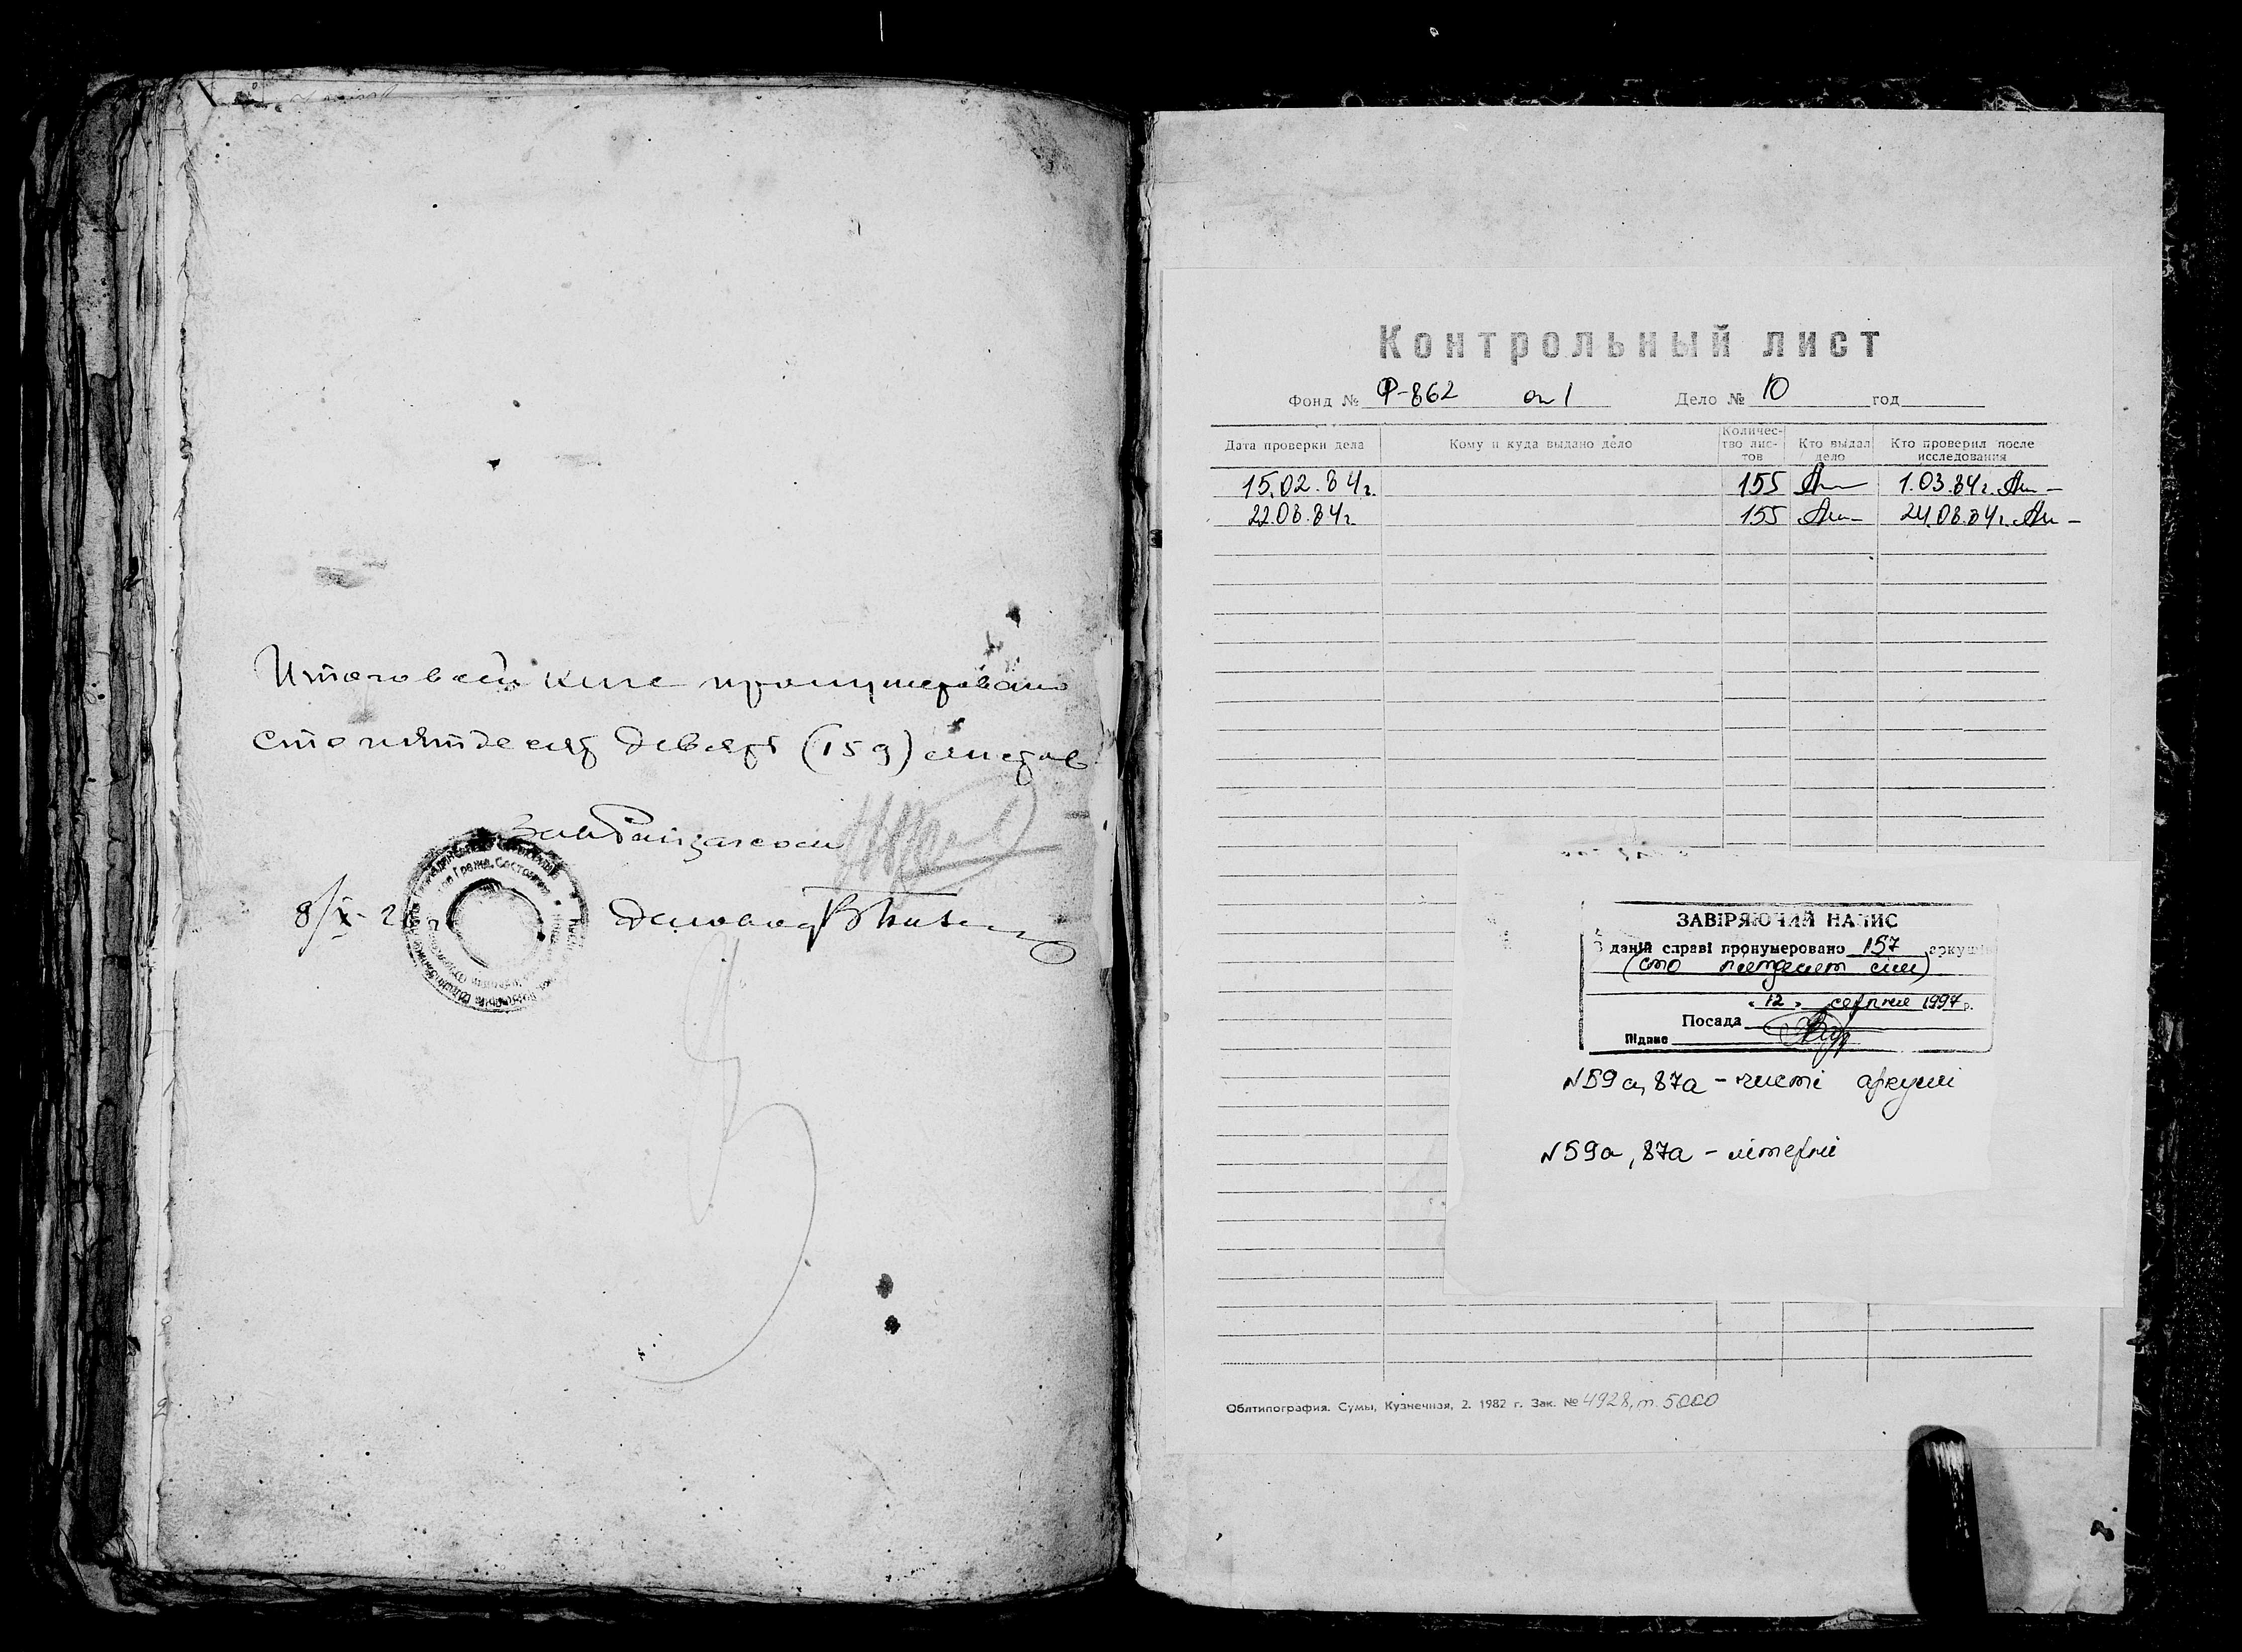 пронумеровано
сто пятдесят девять (159) листов
Контрольный лист
Фонд № Р-862 оп 1 Дело № 10 год
Дата проверки дела Кому и куда выдано дело Количес-тво лис-тов Кто выдал дело Кто проверил после исследования
15.02.84г. 155 1.03.84г.
22.08.84г. 155 24.08.84г.
ЗАВІРЯЮЧИЙ НАПИС
В даній справі пронумеровано 157 аркушів
(сто пятдесят сім)
"12" серпня 1997 р.
Посада
Підпис
№59а, 87а - чисті аркуші
№59а, 87а - літерні
Облтипография. Сумы, Кузнечная, 2. 1982 г. Зак. № 4928, т. 5000